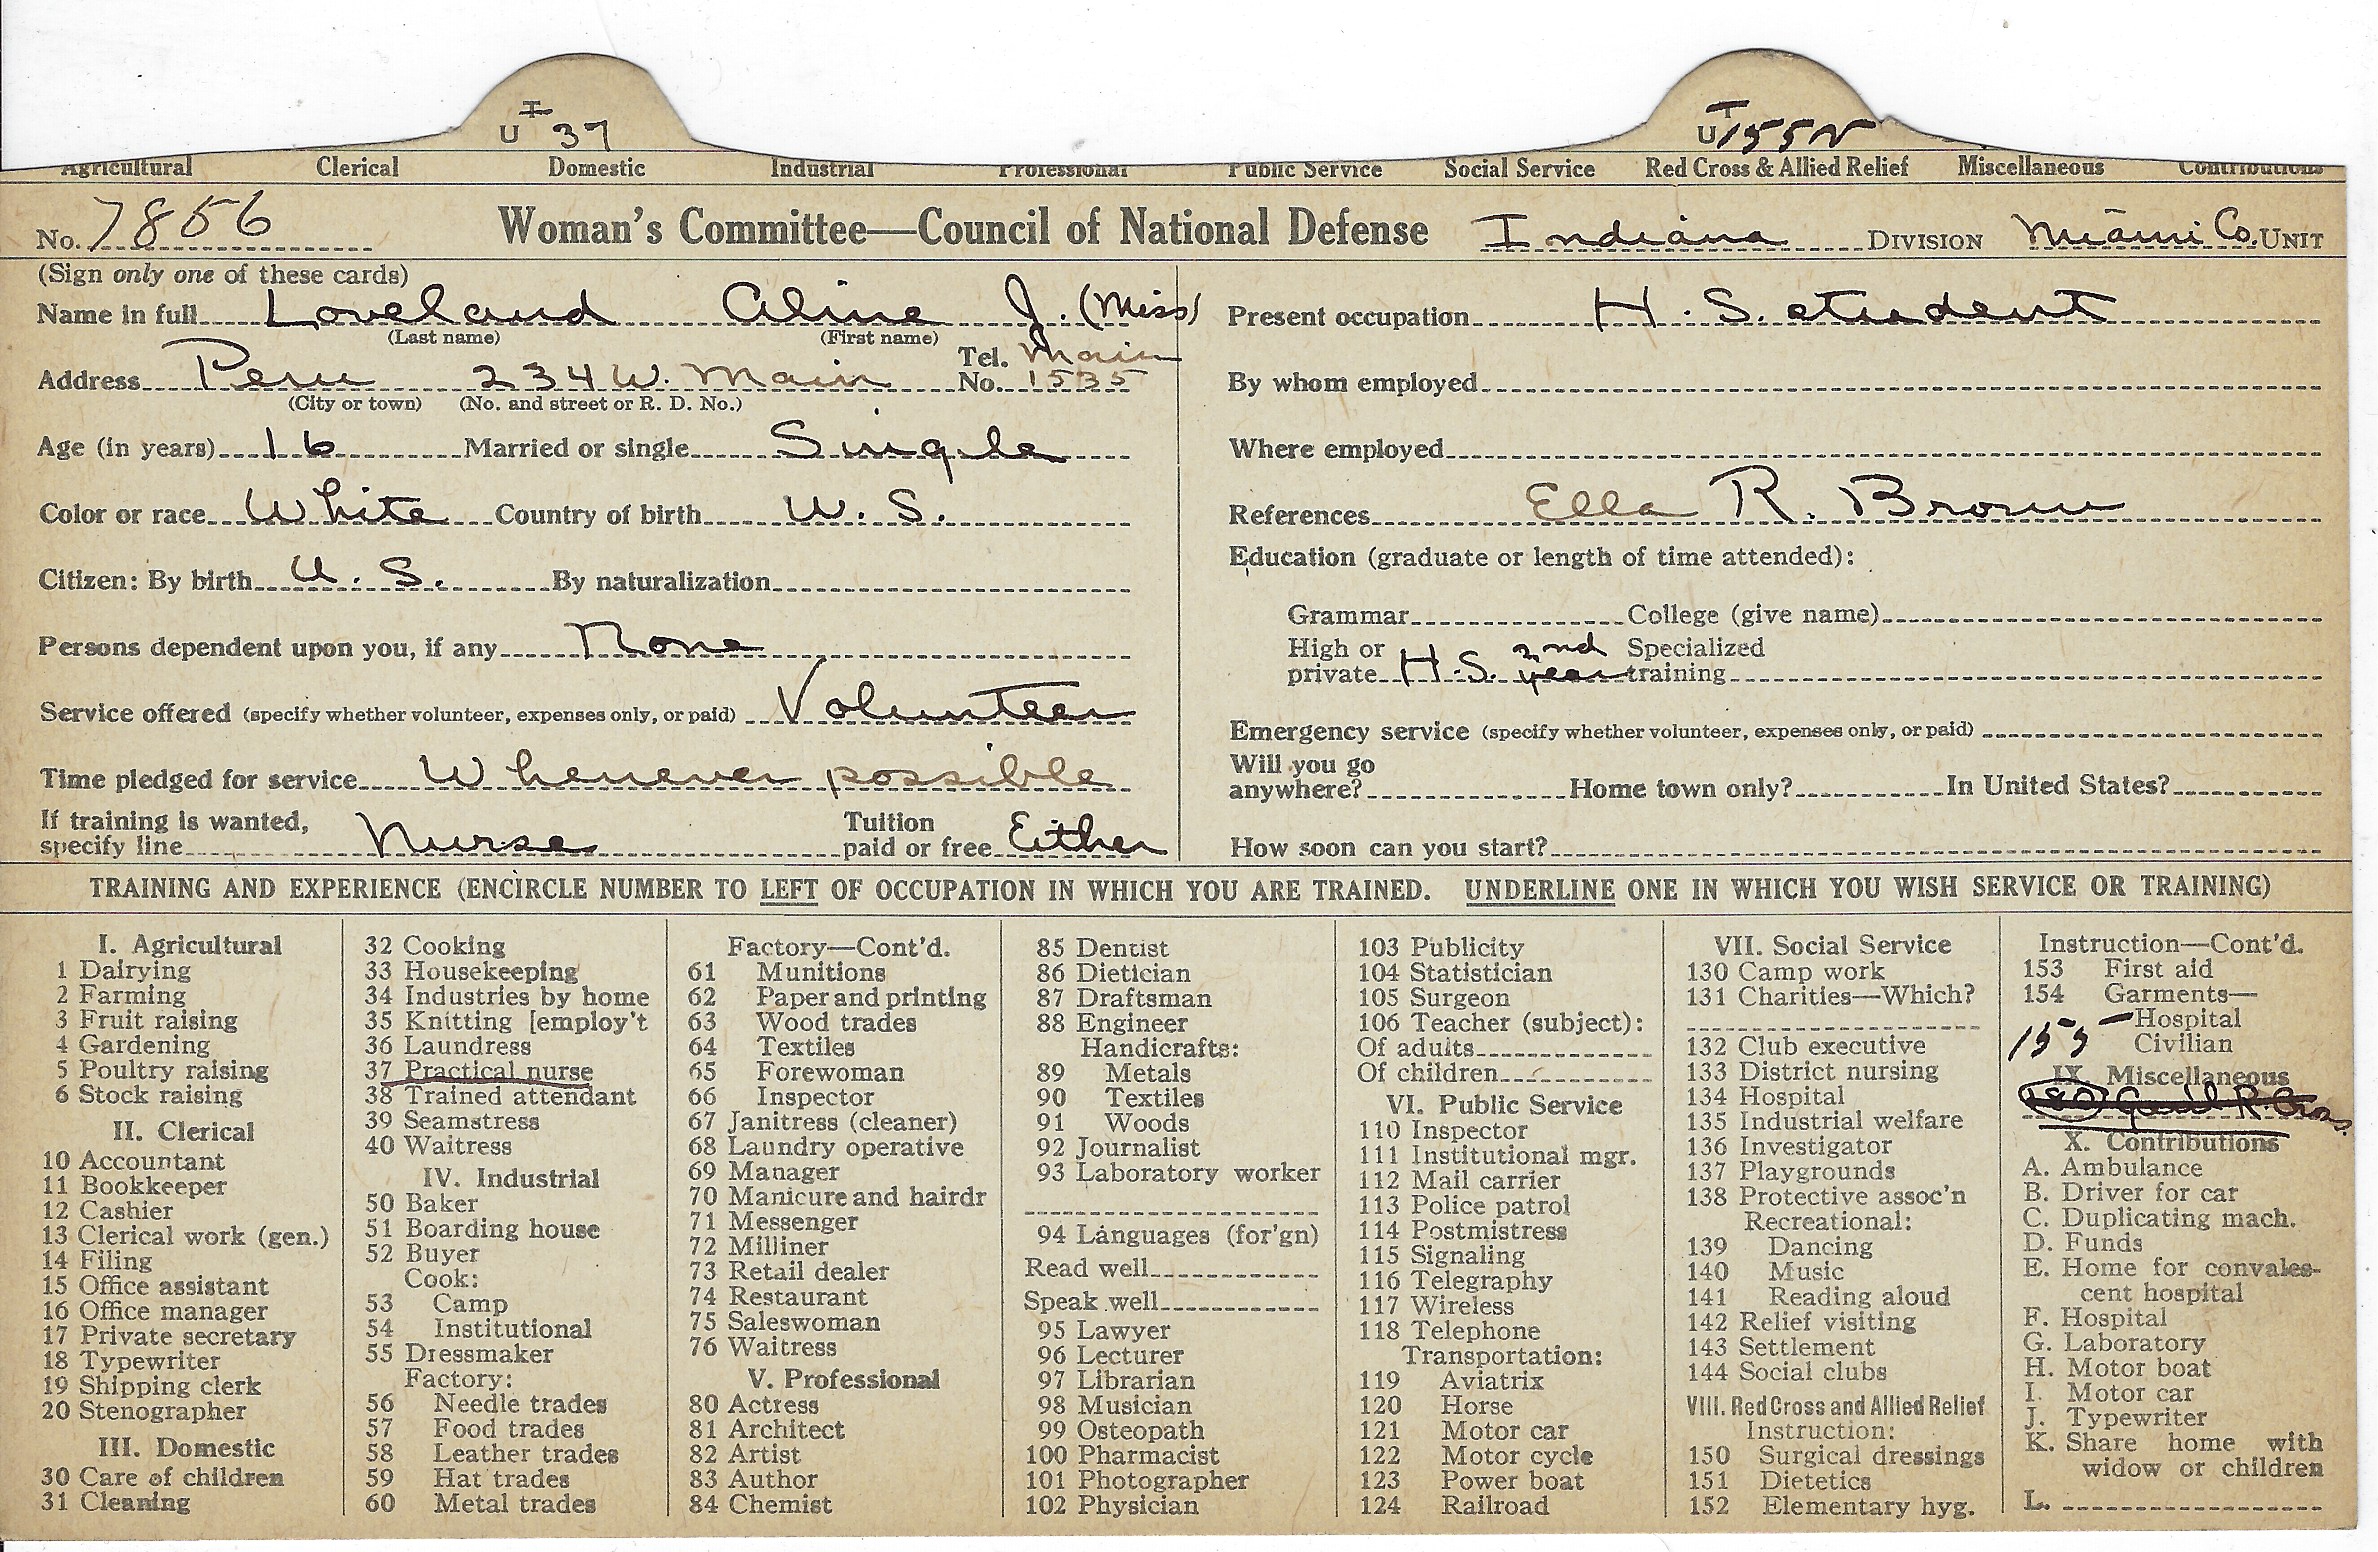 T
U 37
T
U 155 V
Agricultural Clerical Domestic Industrial Professional Public Service Social Service Red Cross & Allied Relief Miscellaneous Contributions
No. 7856 Woman's Committee—Council of National Defense Indiana DIVISION Miami Co. UNIT
(Sign only one of these cards)
Name in full Loveland Aline J. (Miss)
(Last name) (First name)
Address Peru 234 W. Main Tel. No. Main 1535
(City or town) (No. and street or R. D. No.)
Age (in years) 16 Married or single Single
Color or race White Country of birth U. S.
Citizen: By birth U. S. By naturalization
Persons dependent upon you, if any None
Service offered (specify whether volunteer, expenses only, or paid) Volunteer
Time pledged for service Whenever possible
If training is wanted,
specify line Nurse Tuition paid or free Either
Present occupation H. S. student
By whom employed
Where employed
References Ella R. Brown
Education (graduate or length of time attended):
Grammar College (give name)
High or private H.S. 2nd year Specialized training
Emergency service (specify whether volunteer, expenses only, or paid)
Will you go anywhere? Home town only? In United States?
How soon can you start?
TRAINING AND EXPERIENCE (ENCIRCLE NUMBER TO LEFT OF OCCUPATION IN WHICH YOU ARE TRAINED. UNDERLINE ONE IN WHICH YOU WISH SERVICE OR TRAINING)
I. Agricultural
1 Dairying
2 Farming
3 Fruit raising
4 Gardening
5 Poultry raising
6 Stock raising
II. Clerical
10 Accountant
11 Bookkeeper
12 Cashier
13 Clerical work (gen.)
14 Filing
15 Office assistant
16 Office manager
17 Private secretary
18 Typewriter
19 Shipping clerk
20 Stenographer
III. Domestic
30 Care of children
31 Cleaning
32 Cooking
33 Housekeeping
34 Industries by home
35 Knitting [employ't
36 Laundress
37 Practical nurse
38 Trained attendant
39 Seamstress
40 Waitress
IV. Industrial
50 Baker
51 Boarding house
52 Buyer
Cook:
53 Camp
54 Institutional
55 Dressmaker
Factory:
56 Needle trades
57 Food trades
58 Leather trades
59 Hat trades
60 Metal trades
Factory—Cont'd.
61 Munitions
62 Paper and printing
63 Wood trades
64 Textiles
65 Forewoman
66 Inspector
67 Janitress (cleaner)
68 Laundry operative
69 Manager
70 Manicure and hairdr
71 Messenger
72 Milliner
73 Retail dealer
74 Restaurant
75 Saleswoman
76 Waitress
V. Professional
80 Actress
81 Architect
82 Artist
83 Author
84 Chemist
85 Dentist
86 Dietician
87 Draftsman
88 Engineer
Handicrafts:
89 Metals
90 Textiles
91 Woods
92 Journalist
93 Laboratory worker
94 Languages (for'gn)
Read well
Speak well
95 Lawyer
96 Lecturer
97 Librarian
98 Musician
99 Osteopath
100 Pharmacist
101 Photographer
102 Physician
103 Publicity
104 Statistician
105 Surgeon
106 Teacher (subject):
Of adults
Of children
VI. Public Service
110 Inspector
111 Institutional mgr.
112 Mail carrier
113 Police patrol
114 Postmistress
115 Signaling
116 Telegraphy
117 Wireless
118 Telephone
Transportation:
119 Aviatrix
120 Horse
121 Motor car
122 Motor cycle
123 Power boat
124 Railroad
VII. Social Service
130 Camp work
131 Charities—Which?
132 Club executive
133 District nursing
134 Hospital
135 Industrial welfare
136 Investigator
137 Playgrounds
138 Protective assoc'n
Recreational:
139 Dancing
140 Music
141 Reading aloud
142 Relief visiting
143 Settlement
144 Social clubs
VIII. Red Cross and Allied Relief
Instruction:
150 Surgical dressings
151 Dietetics
152 Elementary hyg.
Instruction—Cont'd.
153 First aid
154 Garments—
Hospital
155 Civilian
IX. Miscellaneous
X. Contributions
A. Ambulance
B. Driver for car
C. Duplicating mach.
D. Funds
E. Home for convales-
cent hospital
F. Hospital
G. Laboratory
H. Motor boat
I. Motor car
J. Typewriter
K. Share home with
widow or children
L.